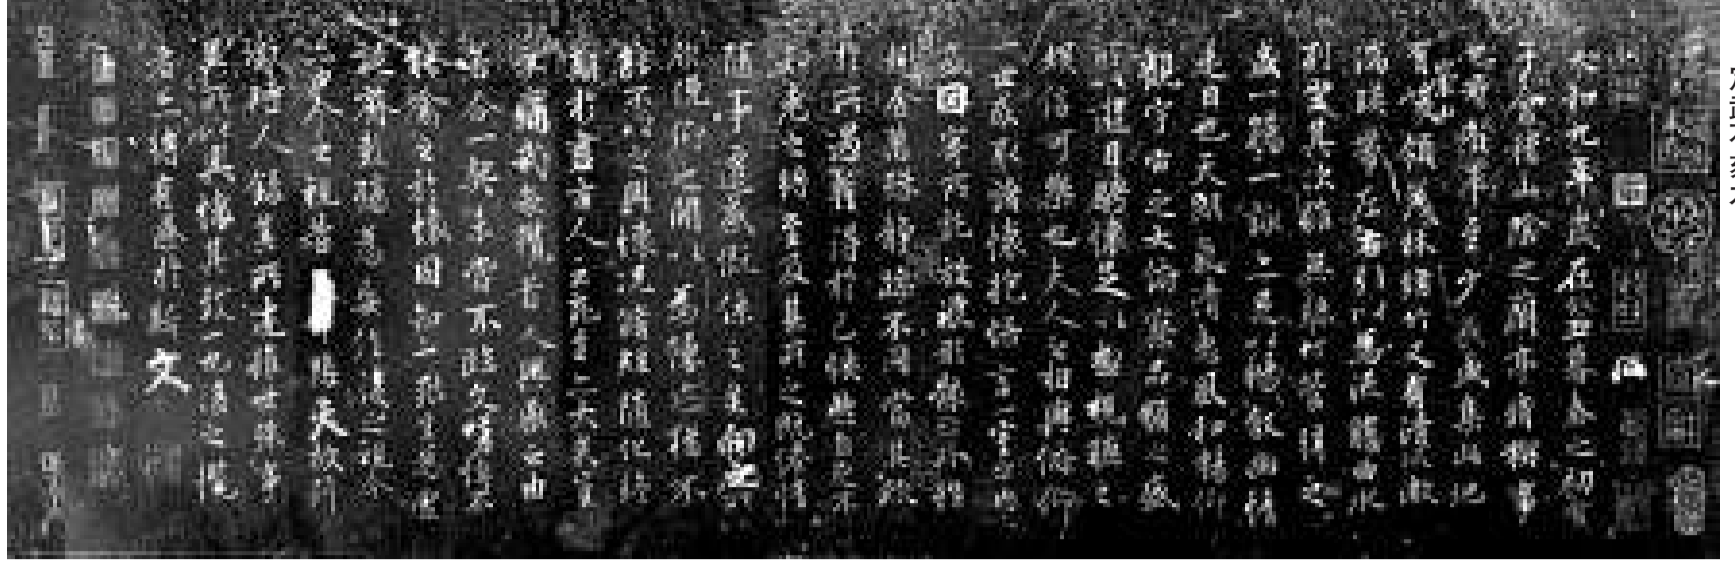 永和九年歲在癸丑暮春之初會
于會稽山陰之蘭亭脩稧事
也群賢畢至少長咸集此地
有崇山峻領茂林脩竹又有清流激
湍暎帶左右引以為流觴曲水
列坐其次雖無絲竹管弦之
盛一觴一詠亦足以暢敘幽情
是日也天朗氣清惠風和暢仰
觀宇宙之大俯察品類之盛
所以遊目騁懷足以極視聽之
娛信可樂也夫人之相與俯仰
一世或取諸懷抱悟言一室之內
或因寄所託放浪形骸之外雖
趣舍萬殊靜躁不同當其欣
於所遇暫得於己怏然自足不
知老之將至及其所之既惓情
隨事遷感慨係之矣向之所
欣俛仰之間以為陳跡猶不
能不以之興懷況脩短隨化終
期於盡古人云死生亦大矣豈
不痛哉每攬昔人興感之由
若合一契未嘗不臨文嗟悼不
能喻之於懷固知一死生為虛
誕齊彭殤為妄作後之視今
亦由今之視昔悲夫故列
敘時人錄其所述雖世殊事
異所以興懷其致一也後之攬
者亦將有感於斯文